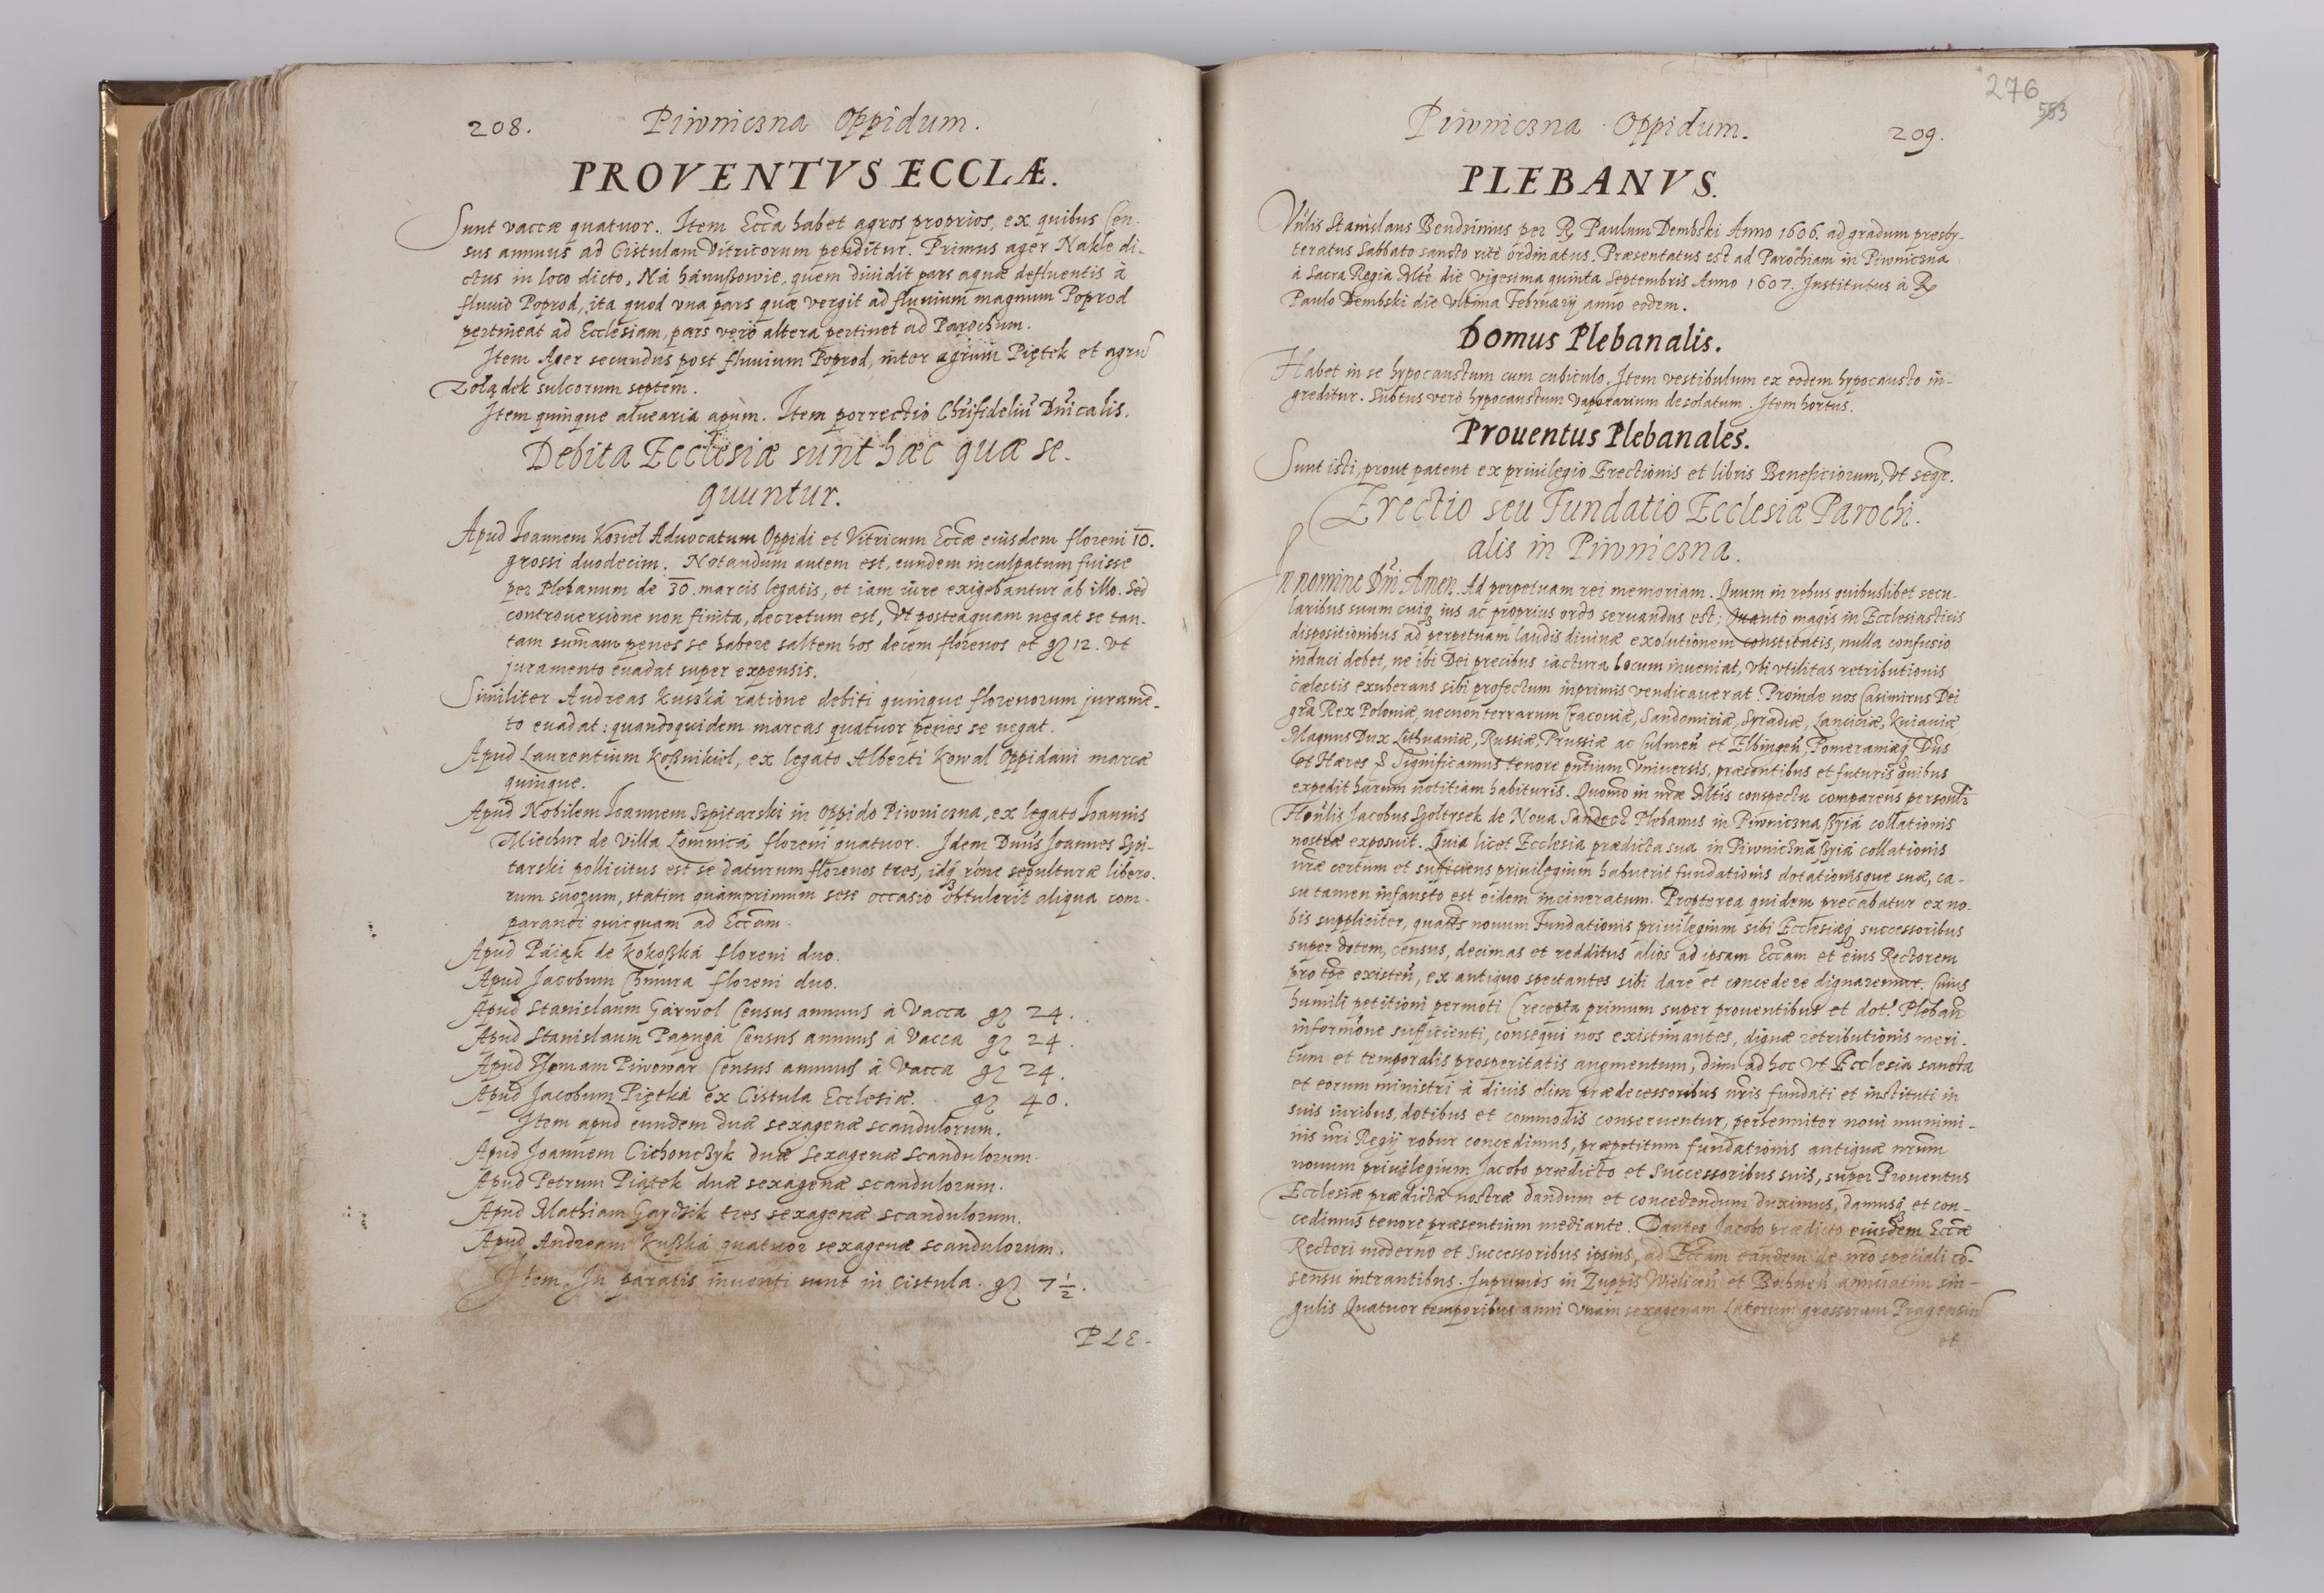 208. Piwniczna Oppidum.
PROVENTVS ECCLÆ.
Sunt vaccæ quatuor. Item Eccã habet agros proprios, ex quibus Cen-
sus annuus ad Cistulam Vitricorum penditur. Primus ager Nakle di-
ctus in loco dicto, Ná hánußowie, quem diuidit pars aquæ defluentis à
fluuio Poprod, ita quod vna pars quæ vergit ad fluuium magnum Poprod
pertineat ad Ecclesiam, pars verò altera pertinet ad Parochum.
Item Ager secundus post fluuium Poprod, inter agrum Piętek et agrũ
Zolądek sulcorum septem.
Item quinque aluearia apùm. Item porrectio Chrĩfideliũ Dnĩcalis.
Debita Ecclesiæ sunt hæc quæ se-
quuntur.
Apud Ioannem Koziel Aduocatum Oppidi et Vitricum Eccæ eiusdem floreni 10.
grossi duodecim. Notandum autem est, eundem inculpatum fuisse
per Plebanum de 30. marcis legatis, et iam iure exigebantur ab illo. Sed
controuersione non finita, decretum est, vt posteaquam negat se tan-
tam sumam penes se habere saltem hos decem florenos et gr 12. vt
juramento euadat super expensis.
Similiter Andreas Kusská ratione debiti quinque florenorum juramẽ-
to euadat: quandoquidem marcas quatuor penes se negat.
Apud Laurentium Koßnikiel, ex legato Alberti Kowal Oppidani marcæ
quinque.
Apud Nobilem Ioannem Szpitarski in Oppido Piwniczna, ex legato Ioannis
Miechur de Villa Łomnicá floreni quatuor. Idem Dnũs Joannes Szpi-
tarski pollicitus est se daturum florenos tres, idq rõne sepulturæ libero-
rum suorum, statim quàmprimum sese occasio obtulerit aliqua com-
parandi quicquam ad Eccãm.
Apud Páiąk de Kokoßká floreni duo.
Apud Jacobum Chmura floreni duo.
Apud Stanislaum Gárwol Census annuus à Vacca gr 24.
Apud Stanislaum Papugá Census annuus à Vacca gr 24.
Apud Thomam Piwowár Census annuus à Vacca gr 24.
Apud Jacobum Piętká ex Cistula Ecclesiæ. gr 40.
Item apud eundem duæ sexagenæ scandulorum.
Apud Joannem Cichonczyk duæ sexagenæ scandulorum.
Apud Petrum Piątek duæ sexagenæ scandulorum.
Apud Mathiam Gardzik tres sexagenæ scandulorum.
Apud Andream Kußká quatuor sexagenæ scandulorum.
Item. In paratis inuenti sunt in Cistula. gr 7 1/2.
PLE-
276
553
Piwniczna Oppidum. 209.
PLEBANVS.
Vñlis Stanislaus Bendrinius per R Paulum Dembski Anno 1606. ad gradum presby-
teratus Sabbato sancto ritè ordinatus. Præsentatus est ad Parochiam in Piwniczna
à Sacra Regia Mtẽ die vigesima quinta Septembris Anno 1607. Institutus à R
Paulo Dembski die vltima February anno eodem.
Domus Plebanalis.
Habet in se hypocaustum cum cubiculo. Item vestibulum ex eodem hypocausto in-
greditur. Subtus verò hypocaustum vaporarium desolatum. Item hortus.
Prouentus Plebanales.
Sunt isti, prout patent ex priuilegio Erectionis et libris Beneficiorum, vt seqr.
Erectio seu Fundatio Ecclesiæ Parochi-
alis in Piwniczna.
In nomine Dnĩ Amen. Ad perpetuam rei memoriam. Quum in rebus quibuslibet secu-
laribus suum cuiq ius ac proprius ordo seruandus est: Quantò magis in Ecclesiasticis
dispositionibus ad perpetuam laudis diuinæ exolutionem constitutis, nulla confusio
induci debet, ne ibi Dei precibus iactura locum inueniat, vbi vtilitas retributionis
cælestis exuberans sibi profectum inprimis vendicauerat. Proinde nos Casimirus Dei
grã Rex Poloniæ, necnon terrarum Cracouiæ, Sandomiriæ, Syradiæ, Lanciciæ, Kuiauiæ
Magnus Dux Lithuaniæ, Russiæ, Prussiæ ac Culmeñ et Elbingeñ, Pomeraniæq Dñs
et Hæres &c Significamus tenore pñtium Vniuersis, præsentibus et futuris quibus
expedit harum notitiam habituris. Quomo in nræ Mtis conspectu comparens personlr
Hoñlis Jacobus Szoltysek de Noua Sandecz Plebanus in Piwniczna ßyiá collationis
nostræ exposuit. Quia licet Ecclesia prædicta sua in Piwniczna ßyiá collationis
nræ certum et sufficiens priuilegium habuerit fundationis dotationisque suæ, ca-
su tamen infausto est eidem incineratum. Propterea quidem precabatur ex no-
bis suppliciter, quatẽs nouum Fundationis priuilegium sibi Ecclesiæq successoribus
super dotem, census, decimas et redditus alios ad ipsam Eccãm et eius Rectorem
pro tpẽ existeñ, ex antiquo spectantes sibi dare et concedere dignaremur. Cuius
humili petitioni permoti (recepta primum super prouentibus et dot. Plebañ
informõne sufficienti, consequi nos existimantes, dignæ retributionis meri-
tum et temporalis prosperitatis augmentum, dum ad hoc vt Ecclesia sancta
et eorum ministri à diuis olim prædecessoribus nris fundati et instituti in
suis iuribus, dotibus et commodis conseruentur, perhenniter noui munimi-
nis nri Regij robur concedimus, præpetitum fundationis antiquæ nrum
nouum priuilegium Jacobo prædicto et Successoribus suis, super Prouentus
Ecclesiæ prædictæ nostræ dandum et concedendum duximus, damusq et con-
cedimus tenore præsentium mediante. Dantes Jacobo prædicto eiusdem Eccæ
Rectori moderno et Successoribus ipsius, ad Eccãm eandem de nro speciali cõ-
sensu intrantibus. Inprimis in Zuppis Wieliceñ et Bochneñ annuatim sin-
gulis Quatuor temporibus anni vnam sexagenam Latorum grossorum Pragensiũ
et